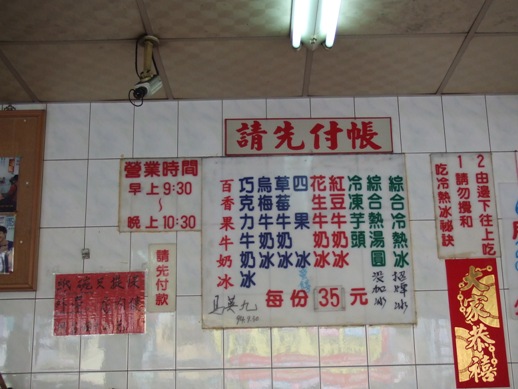 請先付帳
營業時間
早上9:30
～
晚上10:30
請先付款
綜合冷熱冰
綜合熱湯圓
冷凍芋頭
紅豆牛奶冰
花生牛奶冰
四果冰
草莓牛奶冰
烏梅牛奶冰
巧克力牛奶冰
百香果牛奶冰
每份35元
馬英九
吃冷熱冰祕訣
1請勿攪和
2由邊下往上吃
大家恭禧